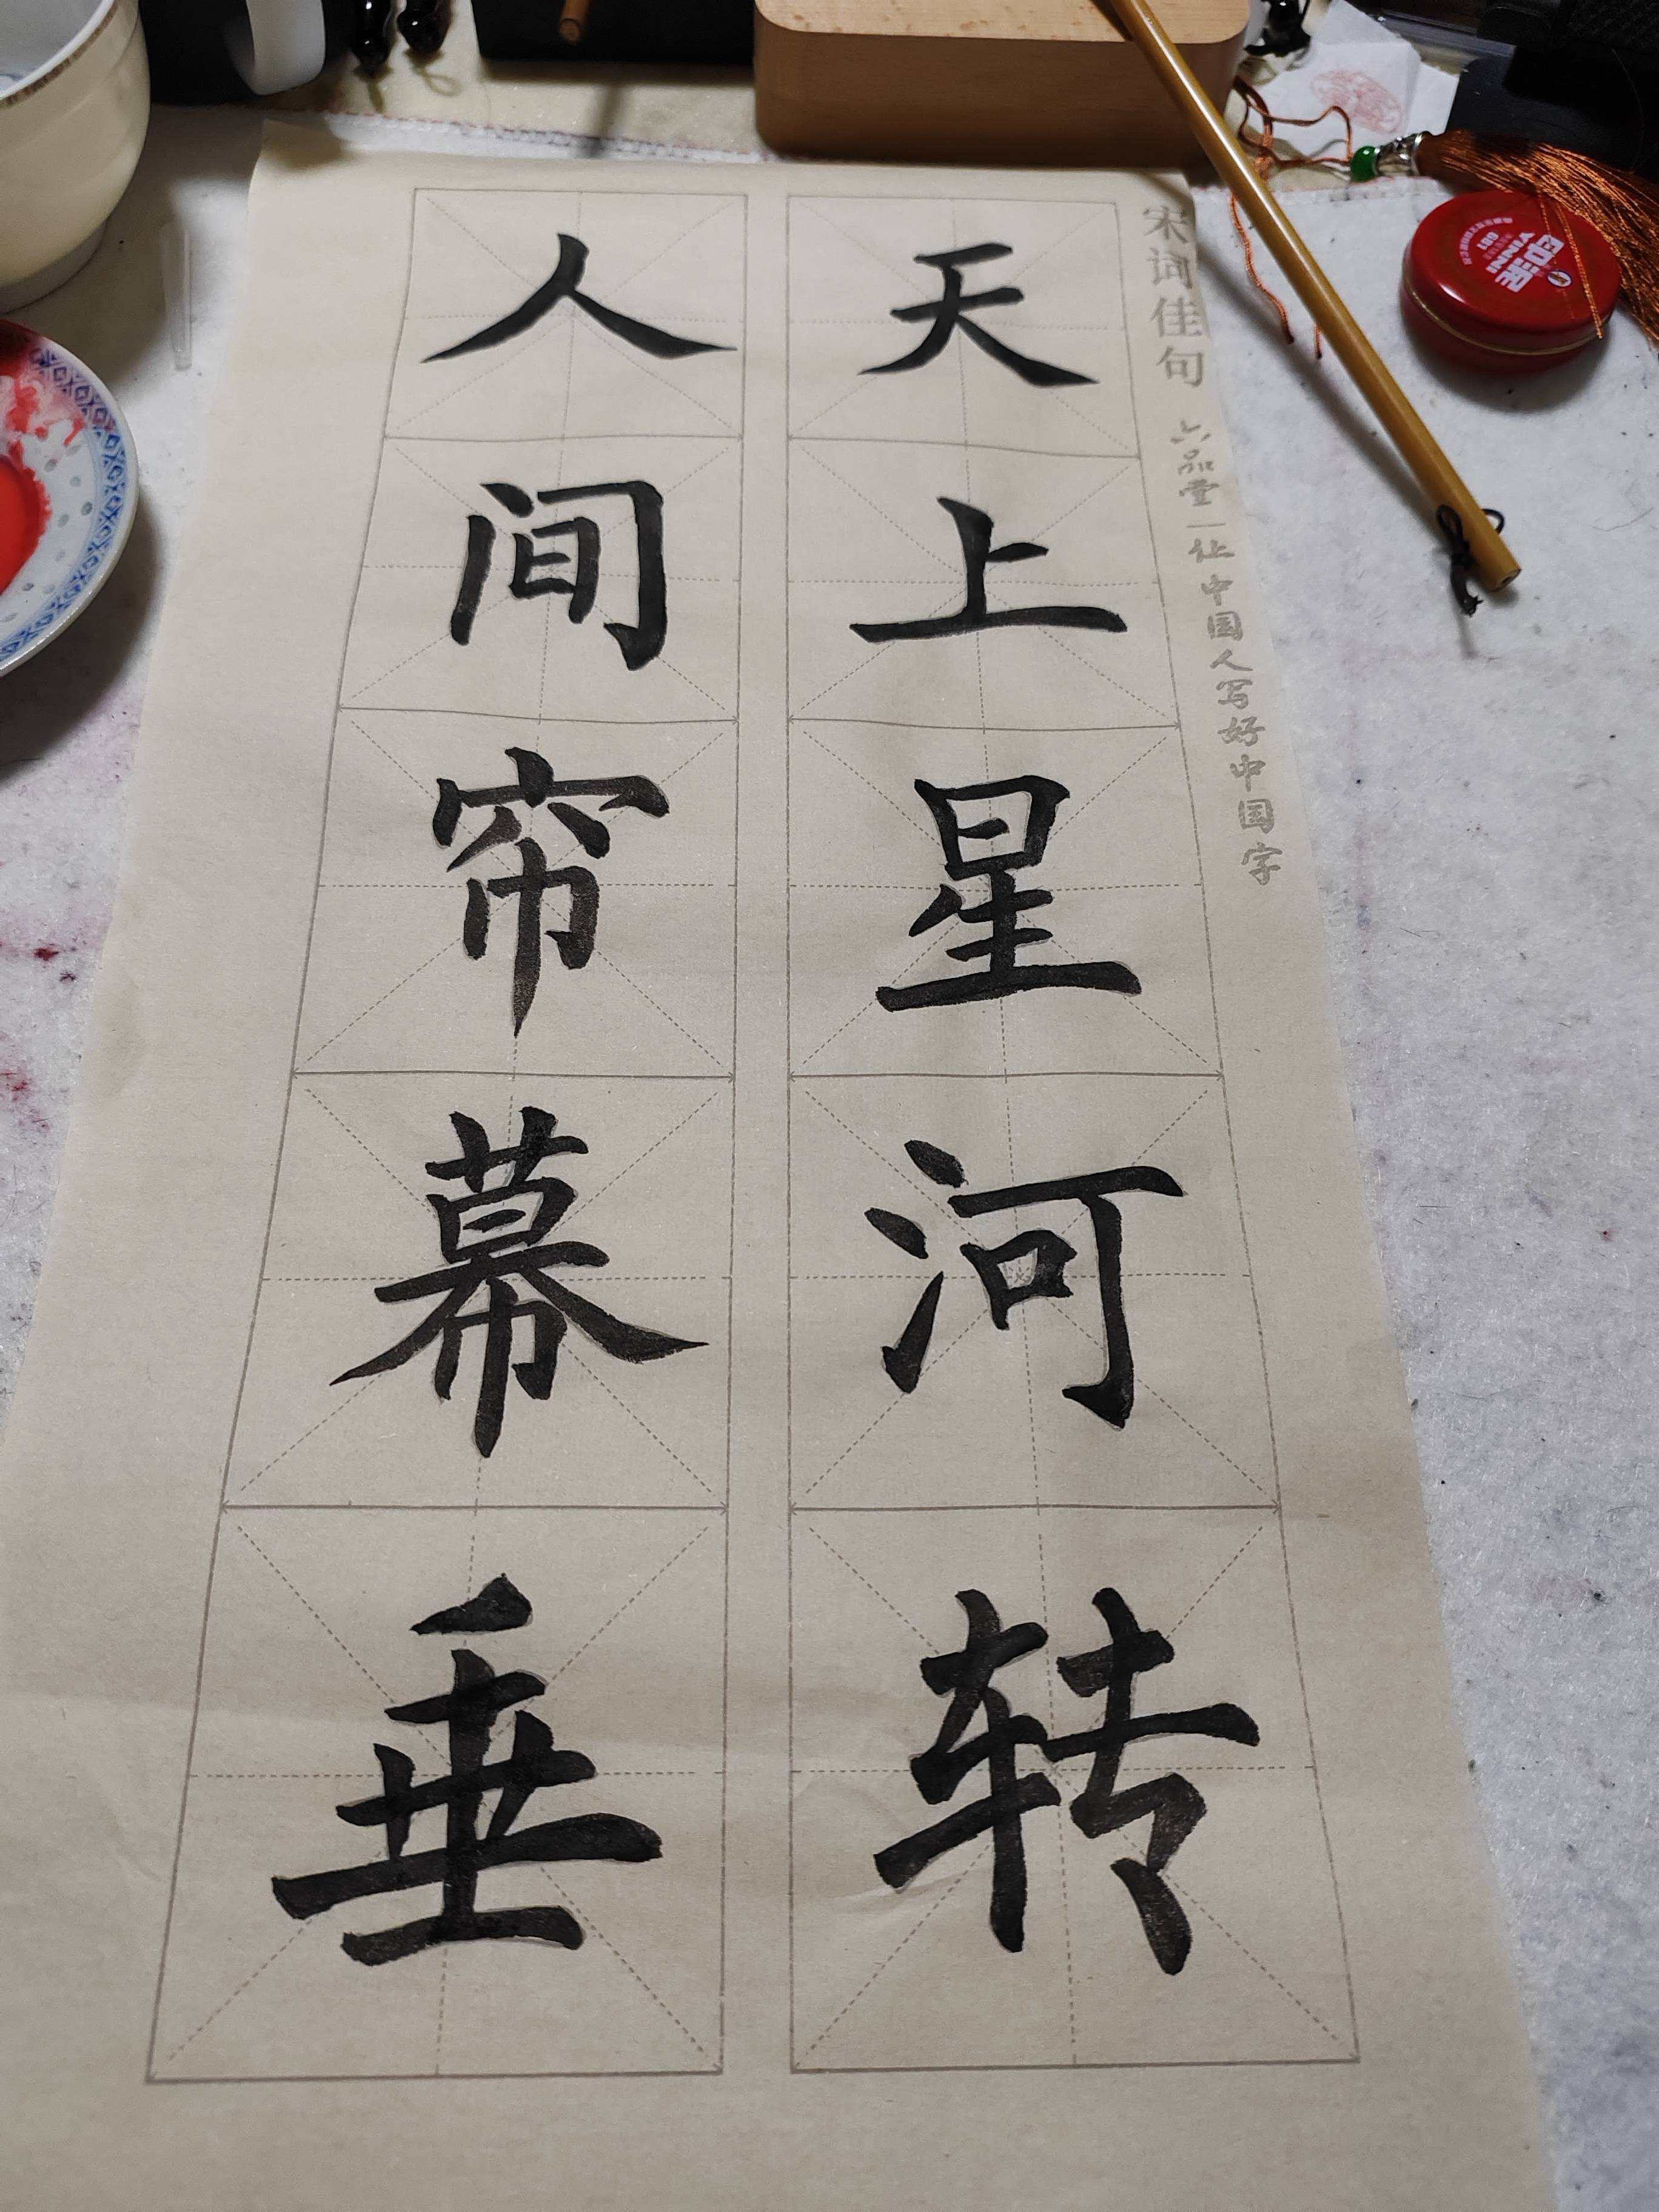 宋词佳句 六品堂—让中国人写好中国字
天上星河转
人间帘幕垂
印泥
YINNI